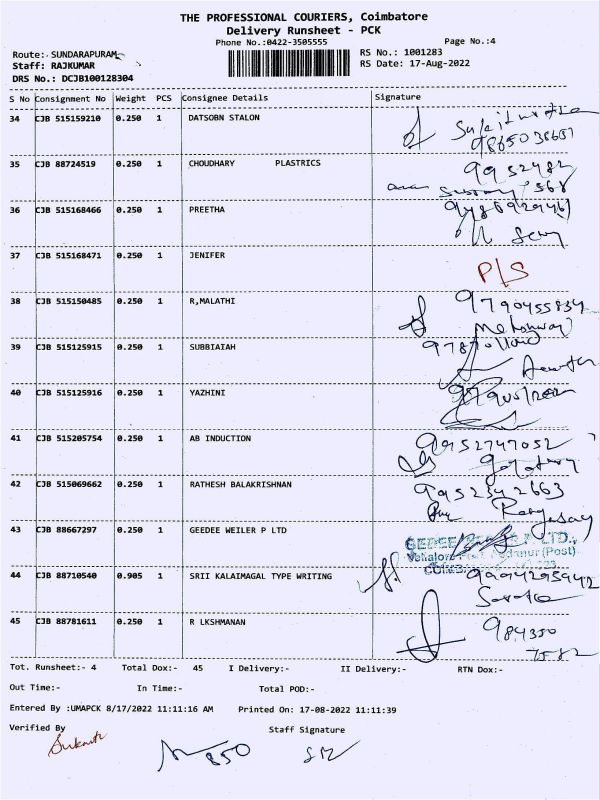 THE PROFESSIONAL COURIERS, Coimbatore
Delivery Runsheet - PCK
Phone No.:0422-3505555 Page No.:4
Route:- SUNDARAPURAM RS No.: 1001283
Staff: RAJKUMAR RS Date: 17-Aug-2022
DRS No.: DCJB100128304
S No Consignment No Weight PCS Consignee Details Signature
34 CJB 515159210 0.250 1 DATSOBN STALON
35 CJB 88724519 0.250 1 CHOUDHARY PLASTRICS
36 CJB 515168466 0.250 1 PREETHA
37 CJB 515168471 0.250 1 JENIFER P/S
38 CJB 515150485 0.250 1 R,MALATHI
39 CJB 515125915 0.250 1 SUBBIAIAH
40 CJB 515125916 0.250 1 YAZHINI
41 CJB 515205754 0.250 1 AB INDUCTION 9952747052
42 CJB 515069662 0.250 1 RATHESH BALAKRISHNAN 9952342663
43 CJB 88667297 0.250 1 GEEDEE WEILER P LTD
44 CJB 88710540 0.905 1 SRII KALAIMAGAL TYPE WRITING 9994295942
45 CJB 88781611 0.250 1 R LKSHMANAN 984350
7582
Tot. Runsheet:- 4 Total Dox:- 45 I Delivery:- II Delivery:- RTN Dox:-
Out Time:- In Time:- Total POD:-
Entered By :UMAPCK 8/17/2022 11:11:16 AM Printed On: 17-08-2022 11:11:39
Verified By Staff Signature
850